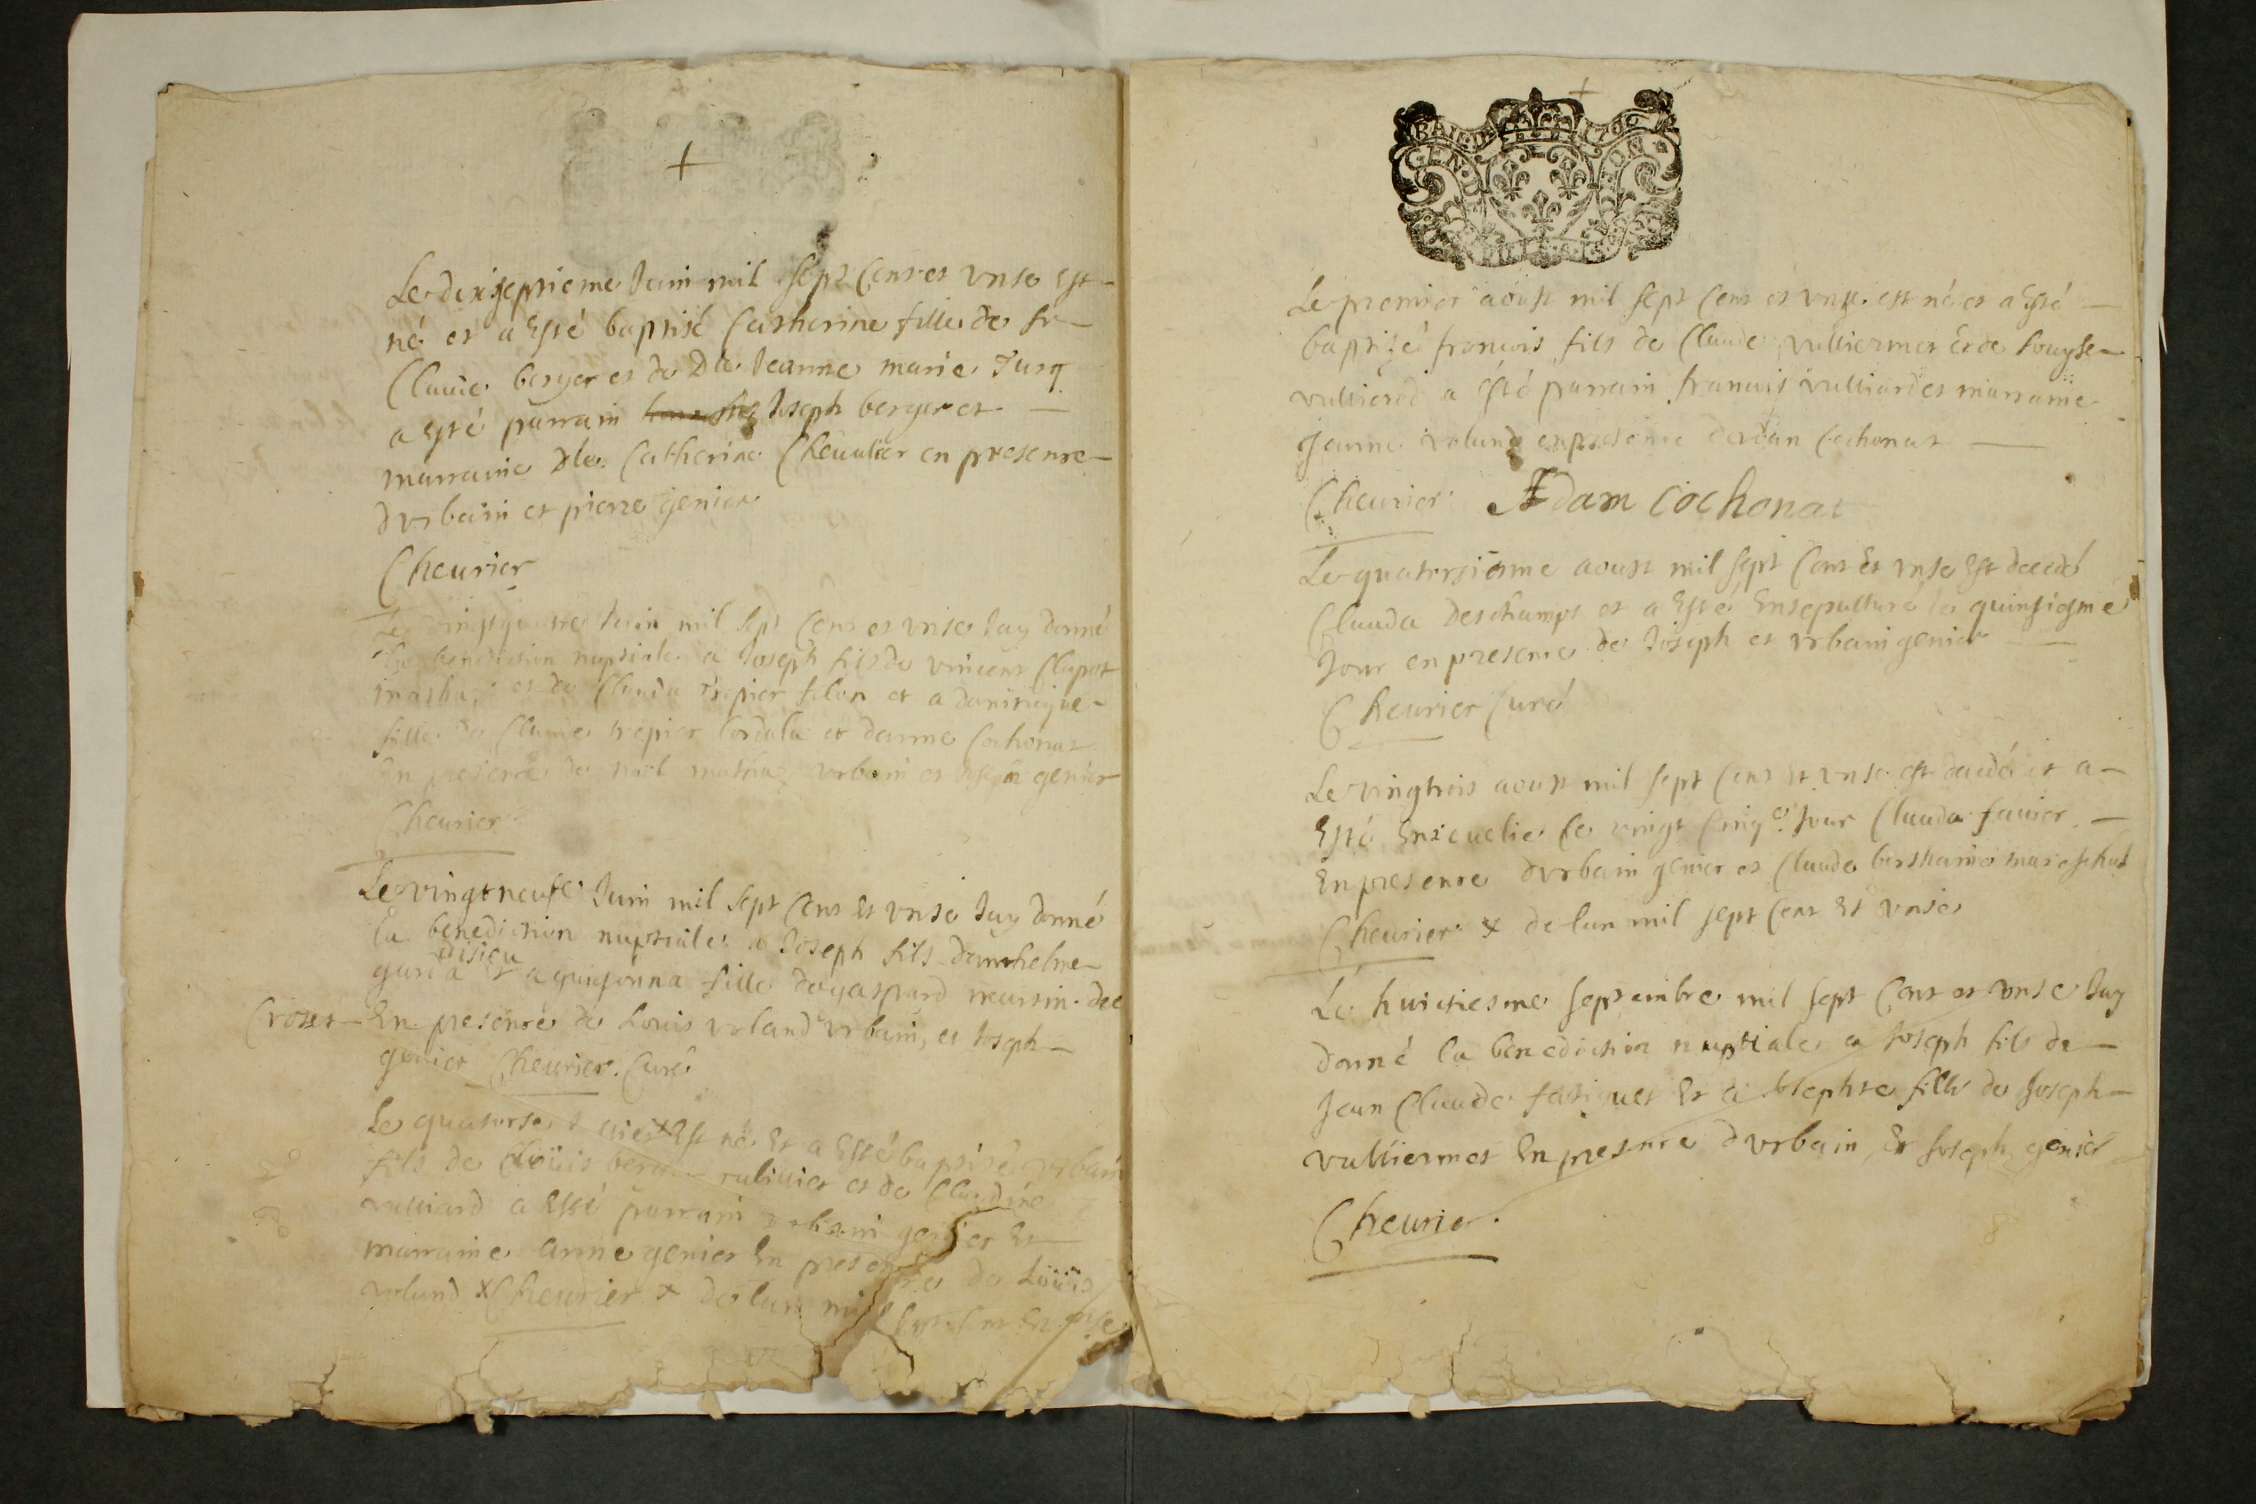 +
Le dixseptieme Juin mil sept Cens et unse Est
né et a Esté baptisé Catherine fille de sr
Claude berger et de Dle Jeanne marie Turq
a Esté parrain Joseph berger et
marraine Dle Catherine Cheualier en presence
durbain et pierre genier
Cheurier
Le vingtquatre Juin mil sept Cens et unse Jay donné
la benediction nuptiale a Joseph fils de vincent Clapot
et de Clauda trepier et a
fille de Claude trepier et danne Cochonat
En presence de noel urbain et Joseph genier
Cheurier
Le vingt neufe Juin mil sept Cens Et unse Jay donné
la benediction nuptiale a Joseph fils danthelme
disieu
Et a guigonna fille de gaspard de
Crozet En presence de Louis voland urbain, et Joseph
genier Cheurier Curé
Le quatorse Est né Et a Esté baptisé urbain
fils de Loüis et de Claudine
vulliard a Esté parrain urbain genier Et
marraine anne genier En presence de Loüis
voland x Cheurier x de lan mil sept Cens Et unse
+
GEN D
Le premier aoust mil sept Cens et unse est né et a Esté
baptizé francois fils de Claude vulliermet Et de Louyse
vulliard a Esté parrain francois vulliard et marraine
Jeanne voland en presence dadan Cochonat
Cheurier Adam Cochonat
Le quatorziesme aoust mil sept Cens Et unse Est decedé
Clauda Deschamps et a Esté Ensepulturé le quinsiesme
Jour en presence de Joseph et urbain genier
Cheurier Curé
Le vingtrois aoust mil sept Cens Et unse est decedé et a
Esté Enseuelie le vingt Cinqe Jour Clauda fauier
En presence durbain genier et Claude mareschal
Cheurier x de lan mil sept Cens Et unse
Le huictiesme septembre mil sept Cens et unse Jay
donné la benediction nuptiale a Joseph fils de
Jean Claude Et a Josephte fille de Joseph
vulliermet En presence durbain Et Joseph genier
Cheurier
8